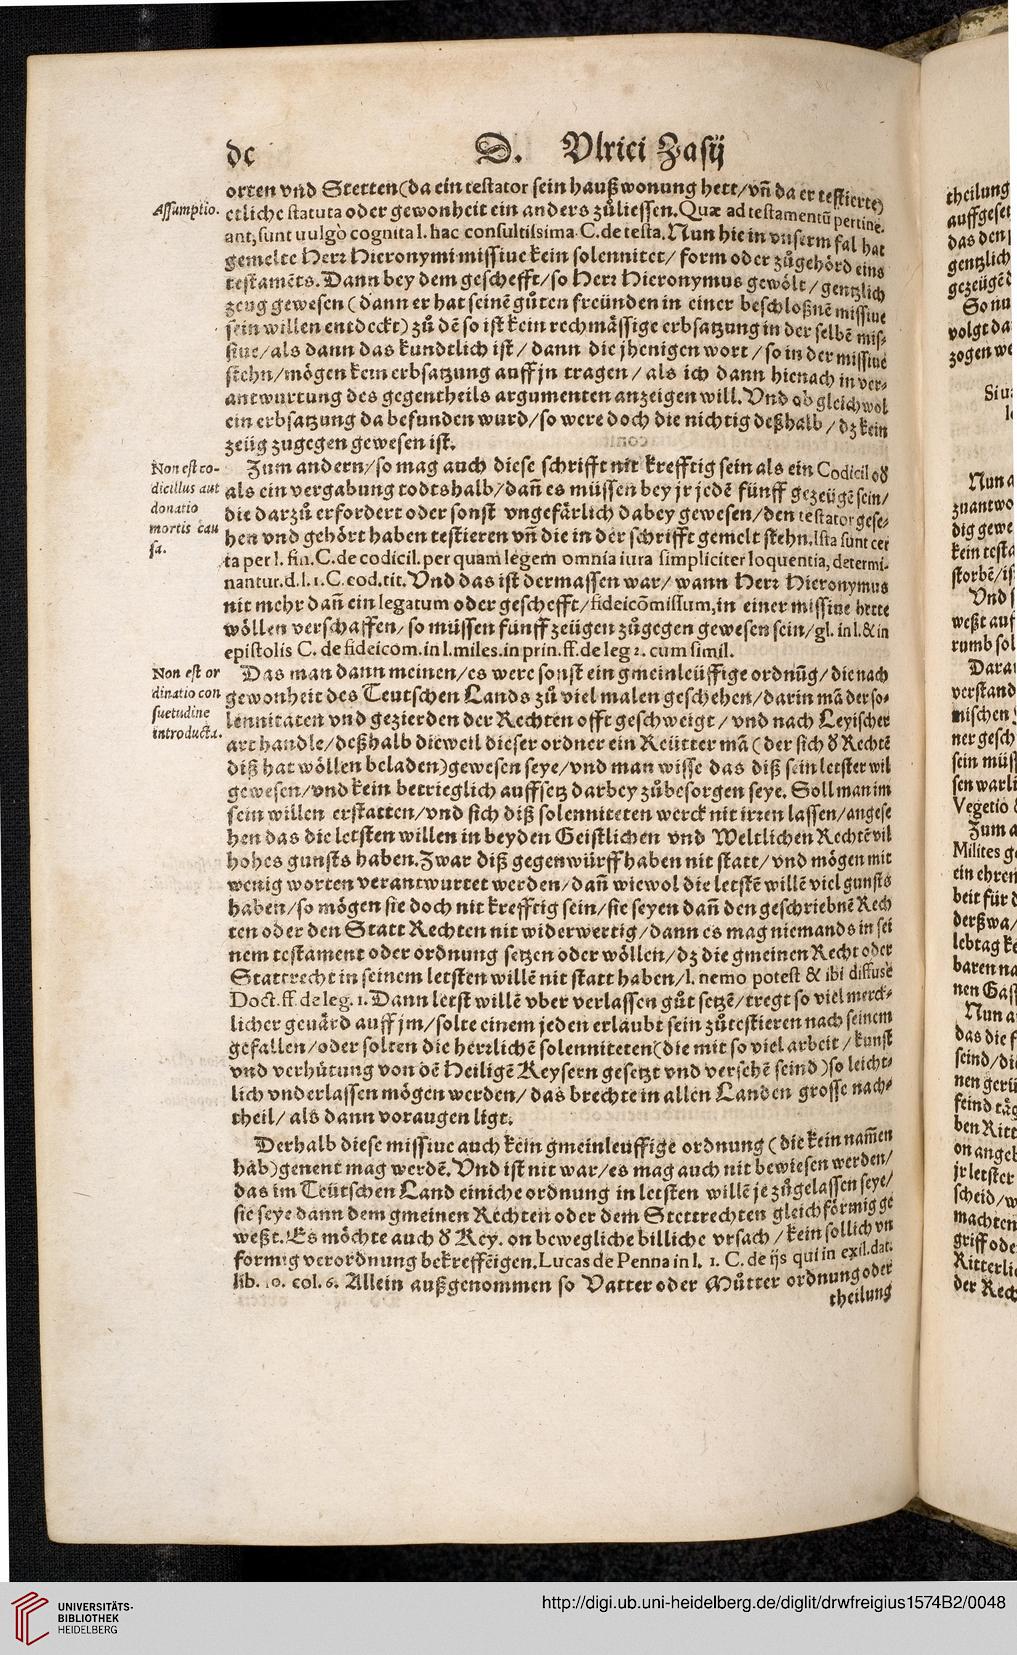 dc D. Vlrici Zasij
orten vnd Stetten (da ein testator sein haußwonung hett / vñ da er testierte)
Assumptio. etliche statuta oder gewonheit ein anders zůliessen. Quæ ad testamentū pertine-
ant, sunt uulgò cognita l. hac consultissima C. de testa. Nun hie in vnserm fal hat
gemelte Herr Hieronymi missiue kein solennitet / form oder zůgehörd eins
testamēts. Dann bey dem geschefft / so Herr Hieronymus gewölt / gentzlich
zeug gewesen (dann er hat seinē gůten freünden in einer beschloßnē missiue
sein willen entdeckt) zů dē so ist kein rechmässige erbsatzung in der selbē mis-
siue / als dann das kundtlich ist / dann die jhenigen wort / so in der missiue
stehn / mögen kein erbsatzung auff jn tragen / als ich dann hienach in ver-
antwurtung des gegentheils argumenten anzeigen will. Vnd ob gleichwol
ein erbsatzung da befunden wurd / so were doch die nichtig deßhalb / dz kein
zeüg zugegen gewesen ist.
Non est co-
dicillus aut
donatio
mortis cau
sa.
Zum andern / so mag auch diese schrifft nit krefftig sein als ein Codicil oď
als ein vergabung todtshalb / dañ es müssen bey jr jedē fünff gezeügē sein /
die darzů erfordert oder sonst vngefärlich dabey gewesen / den testator gese-
hen vnd gehört haben testieren vñ die in der schrifft gemelt stehn. Ista sunt cer
ta per l. fin. C. de codicil. per quam legem omnia iura simpliciter loquentia, determi-
nantur. d. l. 1. C. eod. tit. Vnd das ist dermassen war / wann Herr Hieronymus
nit mehr dañ ein legatum oder geschefft / fideicōmissum, in einer missiue hette
wöllen verschaffen / so müssen fünff zeügen zůgegen gewesen sein / gl. in l. & in
epistolis C. de fideicom. in l. miles. in prin. ff. de leg 2. cum simil.
Non est or
dinatio con
suetudine
introducta.
Das man dann meinen / es were sonst ein gmeinleüffige ordnūg / die nach
gewonheit des Teutschen Lands zů viel malen geschehen / darin mā der so-
lennitaten vnd gezierden der Rechten offt geschweigt / vnd nach Leyischer
art handle / deßhalb dieweil dieser ordner ein Reütter mā (der sich ď Rechtē
diß hat wöllen beladen) gewesen seye / vnd man wisse das diß sein letster wil
gewesen / vnd kein betrieglich auffsetz darbey zůbesorgen seye. Soll man im
sein willen erstatten / vnd sich diß solenniteten werck nit irren lassen / angese
hen das die letsten willen in beyden Geistlichen vnd Weltlichen Rechtē vil
hohes gunsts haben. Zwar diß gegenwürff haben nit statt / vnd mögen mit
wenig worten verantwurtet werden / dañ wiewol die letstē willē viel gunsts
haben / so mögen sie doch nit krefftig sein / sie seyen dañ den geschriebnē Rech
ten oder den Statt Rechten nit widerwertig / dann es mag niemands in sei
nem testament oder ordnung setzen oder wöllen / dz die gmeinen Recht oder
Stattrecht in seinem letsten willē nit statt haben / l. nemo potest & ibi diffusè
Doct. ff. de leg. 1. Dann letst willē vber verlassen gůt setzē / tregt so viel merck-
licher geuärd auff jm / solte einem jeden erlaubt sein zůtestieren nach seinem
gefallen / oder solten die herrlichē solenniteten (die mit so viel arbeit / kunst
vnd verhütung von dē Heiligē Keysern gesetzt vnd versehē seind) so leicht-
lich vnderlassen mögen werden / das brechte in allen Landen grosse nach-
theil / als dann voraugen ligt.
Derhalb diese missiue auch kein gmeinleuffige ordnung (die kein nam̄en
hab) genent mag werdē. Vnd ist nit war / es mag auch nit bewiesen werden /
das im Teütschen Land einiche ordnung in letsten willē je zůgelassen seye /
sie seye dann dem gmeinen Rechten oder dem Stettrechten gleichförmig ge
weßt. Es möchte auch ď Key. on bewegliche billiche vrsach / kein sollich vn
formig verordnung bekreffēigen. Lucas de Penna in l. 1. C. de ijs qui in exil. dat.
lib. 10. col. 6. Allein außgenommen so Vatter oder Můtter ordnung oder
theilung
theilung
auffgeset
das den
gentzlich
gezeügē
So nu
volgt da
zogen we
Siu
Nun a
zuantwo
dig gewe
kein testa
storbē / is
Vnd s
weßt auf
rumb sol
Darau
verstand
mischen
ner gesch
sein müss
sen warli
Vegetio
Zum a
Milites g
ein ehren
beit für
derßwa /
lebtag ke
baren na
nen Gäst
Nun a
das die f
seind / di
nen gerü
feind täg
ben Ritt
on angeb
jr letster
scheid / w
machten
griff ode
Ritterli
der Rech
UNIVERSITÄTS-
BIBLIOTHEK
HEIDELBERG
http://digi.ub.uni-heidelberg.de/diglit/drwfreigius1574B2/0048